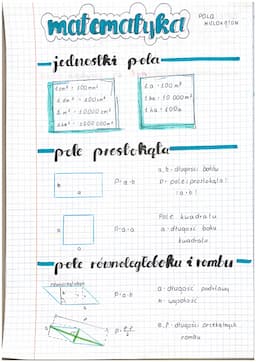 matematyka
POLA
WIELOKĄTÓW
jednostki pola
1 cm² = 100 mm²
1 dm² = 100 cm²
1 m² = 10 000 cm²
1 a = 100 m²
1 ha = 10 000 m²
1 ha = 100 a
pole prostokąta
b
a
P=a·b
a, b - długości boków
P - pole prostokąta
(a·b)
a
P=a·a
Pole kwadratu
a - długość boku
kwadratu
pole równoległoboku i rombu
równoległobok
h
a
P=a·h
a - długość podstawy
h - wysokość
e·f
e, f - długości przekątnych
rombu